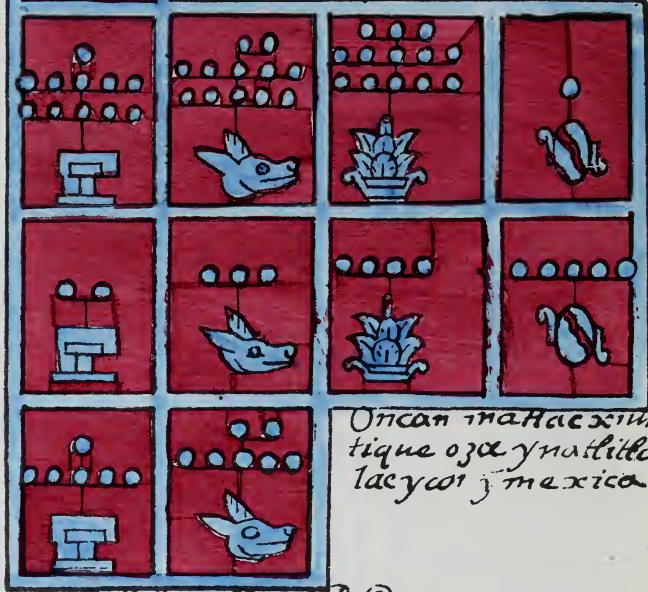 Oncan matlac xiuh
tique oza ynatlitla
lac ycoi y mexica